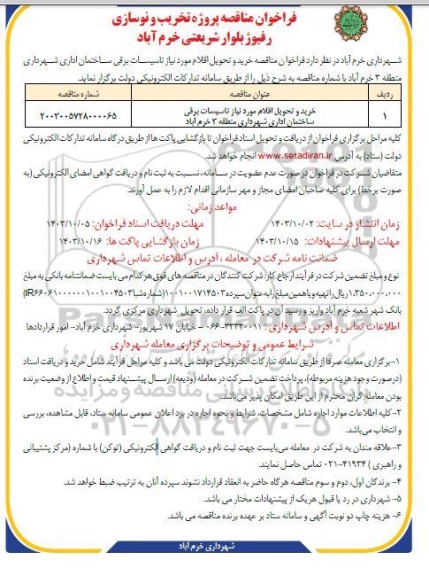 فراخوان مناقصه پروژه تخریب و نوسازی
رفیوژ بلوار شریعتی خرم آباد
شـهرداری خرم آباد در نظر دارد فراخوان مناقصه خرید و تحویل اقلام مورد نیاز تاسیسـات برقی ساختمان اداری شـهرداری
منطقه ۳ خرم آباد با شماره مناقصه به شرح ذیل را از طریق سامانه تدارکات الکترونیکی دولت برگزار نماید.
ردیف عنوان مناقصه شماره مناقصه
۱ خرید و تحویل اقلام مورد نیاز تاسیسات برقی ساختمان اداری شهرداری منطقه ۳ خرم آباد ۲۰۰۳۰۰۵۷۲۸۰۰۰۰۶۵
کلیه مراحل برگزاری فراخوان از دریافت و تحویل اسناد فراخوان تا بازگشایی پاکت ها از طریق درگاه سامانه تدارکات الکترونیکی
دولت (ستاد) به آدرس www.setadiran.ir انجام خواهد شد.
متقاضیان شـرکت در فراخوان در صورت عدم عضویت در سـامانه، نسـبت به ثبت نام و دریافت گواهی امضای الکترونیکی (به
صورت برخط) برای کلیه صاحبان امضای مجاز و مهر سازمانی اقدام لازم را به عمل آورند.
مواعد زمانی:
زمان انتشار در سایت: ۱۴۰۳/۱۰/۰۲ مهلت دریافت اسناد فراخوان: ۱۴۰۳/۱۰/۰۵
مهلت ارسال پیشنهادات: ۱۴۰۳/۱۰/۱۵ زمان بازگشایی پاکت ها: ۱۴۰۳/۱۰/۱۶
ضمانت نامه شرکت در معامله ، آدرس و اطلاعات تماس شهرداری
نوع و مبلغ تضمین شرکت در فرآیند ارجاع کار: شرکت کنندگان در مناقصه های فوق هر کدام می بایست ضمانتنامه بانکی به مبلغ
۱،۳۵۰،۰۰۰،۰۰۰ ریال را تهیه و یا همین مبلغ را به عنوان سپرده
بانک شهر شعبه خرم آباد واریز و رسید آن در پاکت الف قرار داده، تحویل شهرداری مرکزی گردد.
اطلاعات تماس و آدرس شهرداری : ۳۳۲۲۰۰۹۱-۰۶۶ - خیابان ۱۷ شهریور- شهرداری خرم آباد- امور قراردادها
شرایط عمومی و توضیحات برگزاری معامله شهرداری
۱-برگزاری معامله صرفا از طریق سامانه تدارکات الکترونیکی دولت می باشد و کلیه مراحل فرآیند شامل خرید و دریافت اسناد
(درصورت وجود هزینه مربوطه)، پرداخت تضمین شـرکت در معامله (ودیعه) ارسـال پیشـنهاد قیمت و اطلاع از وضعیت برنده
بودن معامله گران محترم از این طریق امکان پذیر می‌باشد.
۲-کلیه اطلاعات موارد اجاره شامل مشخصات، شرایط و نحوه اجاره در برد اعلان عمومی سامانه ستاد، قابل مشاهده، بررسی
و انتخاب می‌باشد.
۳-علاقه مندان به شرکت در معامله می‌بایست جهت ثبت نام و دریافت گواهی الکترونیکی (توکن) با شماره (مرکز پشتیبانی
و راهبری ) ۴۱۹۳۴-۰۲۱ تماس حاصل نمایند.
۴- برندگان اول، دوم و سوم مناقصه هرگاه حاضر به انعقاد قرارداد نشوند سپرده آنان به ترتیب ضبط خواهد شد.
۵- شهرداری در رد یا قبول هریک از پیشنهادات مختار می باشد.
۶- هزینه چاپ دو نوبت آگهی و سامانه ستاد بر عهده برنده مناقصه می باشد.
شهرداری خرم آباد